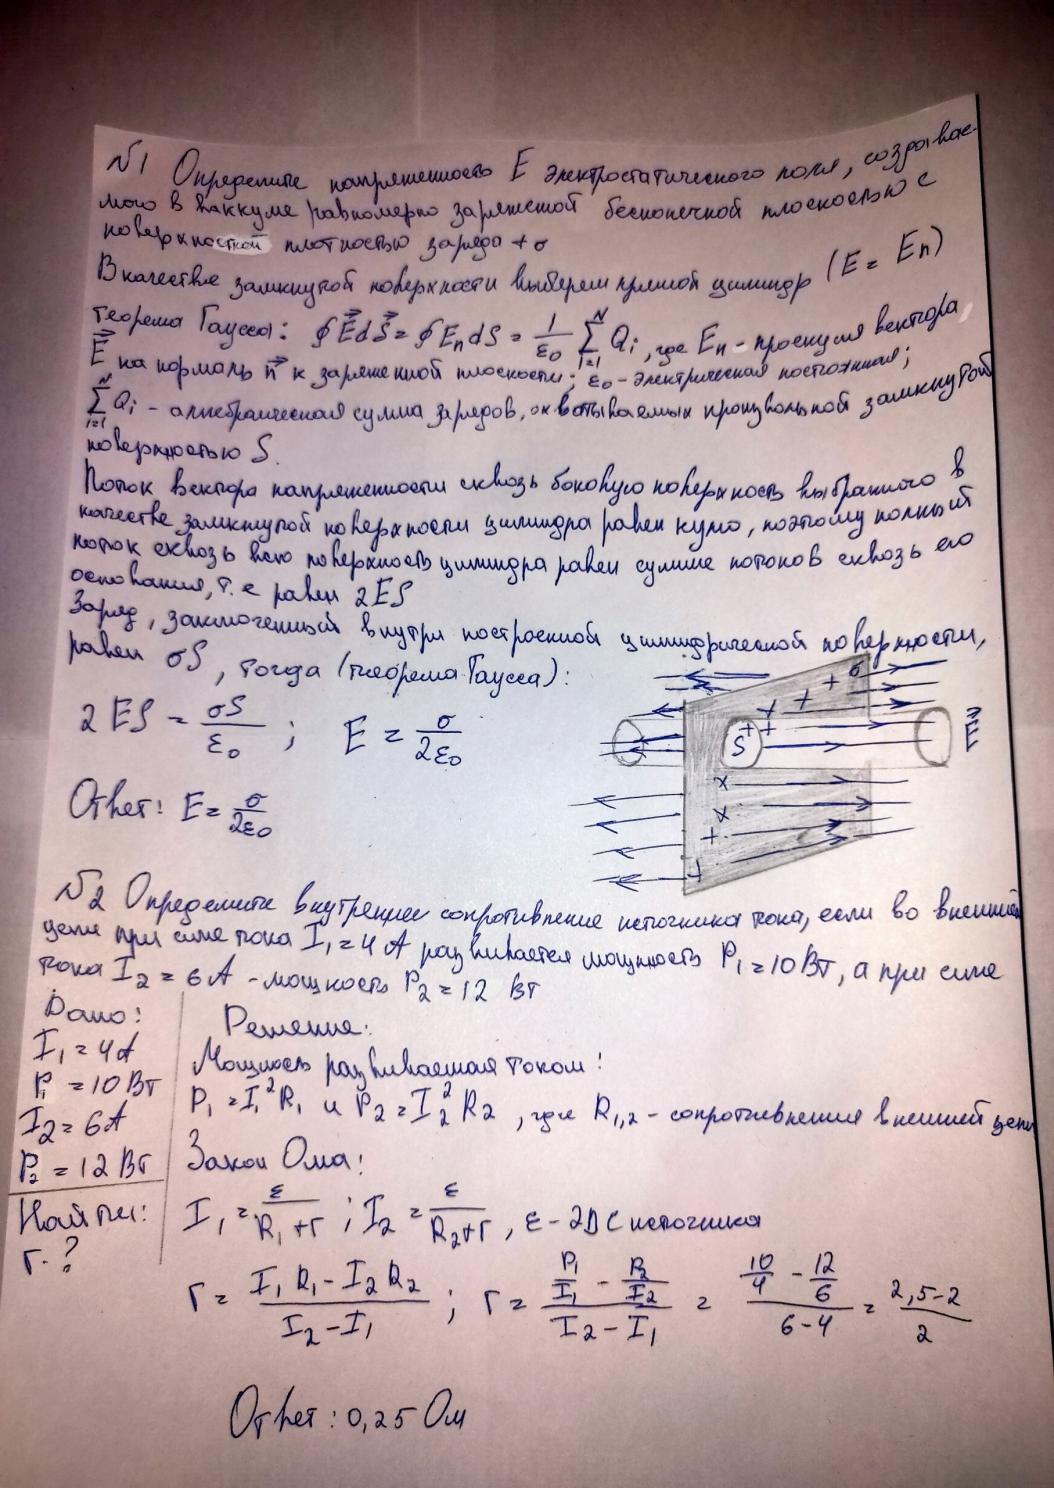 №1 Определите напряженность E электростатического поля, создавае-
мого в ваккуме равномерно заряженной бесконечной плоскостью с
поверхностной плотностью заряда +σ
В качестве замкнутой поверхности выберем прямой цилиндр (E = En)
теорема Гаусса: ∮E⃗dS⃗ = ∮EndS = 1/ε0 ∑(i=1)^N Qi, где En - проекция вектора
E⃗ на нормаль n⃗ к заряженной плоскости; ε0 - электрическая постоянная;
∑(i=1)^N Qi - алгебраическая сумма зарядов, охватываемых произвольной замкнутой
поверхностью S.
Поток вектора напряженности сквозь боковую поверхность выбранного в
качестве замкнутой поверхности цилиндра равен нулю, поэтому полный
поток сквозь всю поверхность цилиндра равен сумме потоков сквозь его
основания, т.е равен 2ES
Заряд, заключенный внутри построенной цилиндрической поверхности,
равен σS, тогда (теорема Гаусса):
2ES = σS/ε0 ; E = σ/2ε0
σ
+ + + + +
S
E⃗
x
x
+
+
Ответ: E = σ/2ε0
№2 Определите внутреннее сопротивление источника тока, если во внешней
цепи при силе тока I1 = 4 A развивается мощность P1 = 10 Вт, а при силе
тока I2 = 6 A - мощность P2 = 12 Вт
Дано:
I1 = 4A
P1 = 10 Вт
I2 = 6A
P2 = 12 Вт
Найти:
r - ?
Решение:
Мощность развиваемая током:
P1 = I1²R1 и P2 = I2²R2, где R1,2 - сопротивления внешней цепи
Закон Ома:
I1 = ε/(R1+r) ; I2 = ε/(R2+r), ε - ЭДС источника
r = (I1R1 - I2R2)/(I2 - I1) ; r = (P1/I1 - P2/I2)/(I2 - I1) = (10/4 - 12/6)/(6-4) = (2,5-2)/2
Ответ: 0,25 Ом